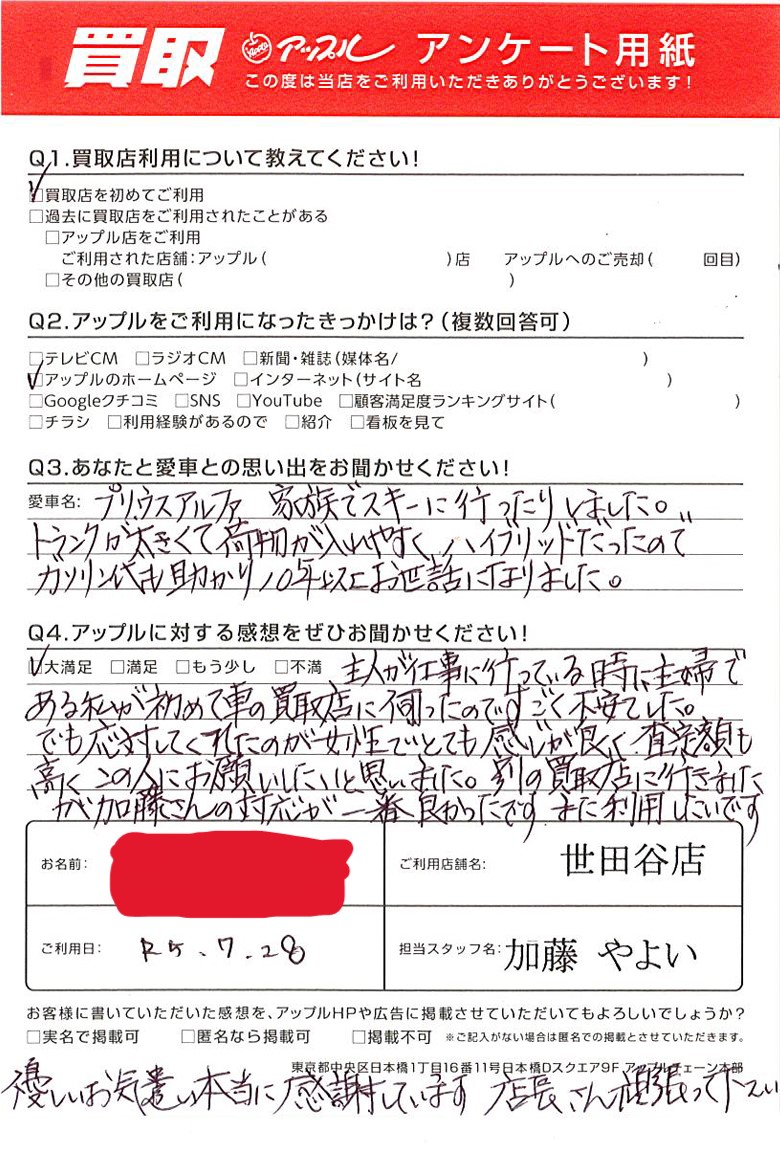 買取 Apple アップル アンケート用紙
この度は当店をご利用いただきありがとうございます!
Q1.買取店利用について教えてください!
☑買取店を初めてご利用
□過去に買取店をご利用されたことがある
□アップル店をご利用
ご利用された店舗:アップル( )店 アップルへのご売却( 回目)
□その他の買取店( )
Q2.アップルをご利用になったきっかけは?(複数回答可)
□テレビCM □ラジオCM □新聞・雑誌(媒体名/ )
☑アップルのホームページ □インターネット(サイト名 )
□Googleクチコミ □SNS □YouTube □顧客満足度ランキングサイト( )
□チラシ □利用経験があるので □紹介 □看板を見て
Q3.あなたと愛車との思い出をお聞かせください!
愛車名: プリウスアルファ 家族でスキーに行ったりしました。
トランクが大きくて荷物が入れやすく ハイブリッドだったので
ガソリン代も助かり10年以上お世話になりました。
Q4.アップルに対する感想をぜひお聞かせください!
☑大満足 □満足 □もう少し □不満 主人が仕事に行っている時に主婦で
ある私が初めて車の買取店に伺ったのですごく不安でした。
でも応対してくれたのが女性でとても感じが良く査定額も
高くこの人にお願いしたいと思いました。別の買取店に行きました
が加藤さんの対応が一番良かったです また利用したいです
お名前: ご利用店舗名: 世田谷店
ご利用日: R5.7.28 担当スタッフ名: 加藤 やよい
お客様に書いていただいた感想を、アップルHPや広告に掲載させていただいてもよろしいでしょうか?
□実名で掲載可 □匿名なら掲載可 □掲載不可 ※ご記入がない場合は匿名での掲載とさせていただきます。
東京都中央区日本橋1丁目16番11号日本橋Dスクエア9F アップルチェーン本部
優しいお気遣い本当に感謝しています 店長さん頑張って下さい